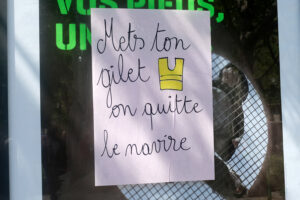 VOS PIEDS,
UN
Mets ton
gilet
on quitte
le navire